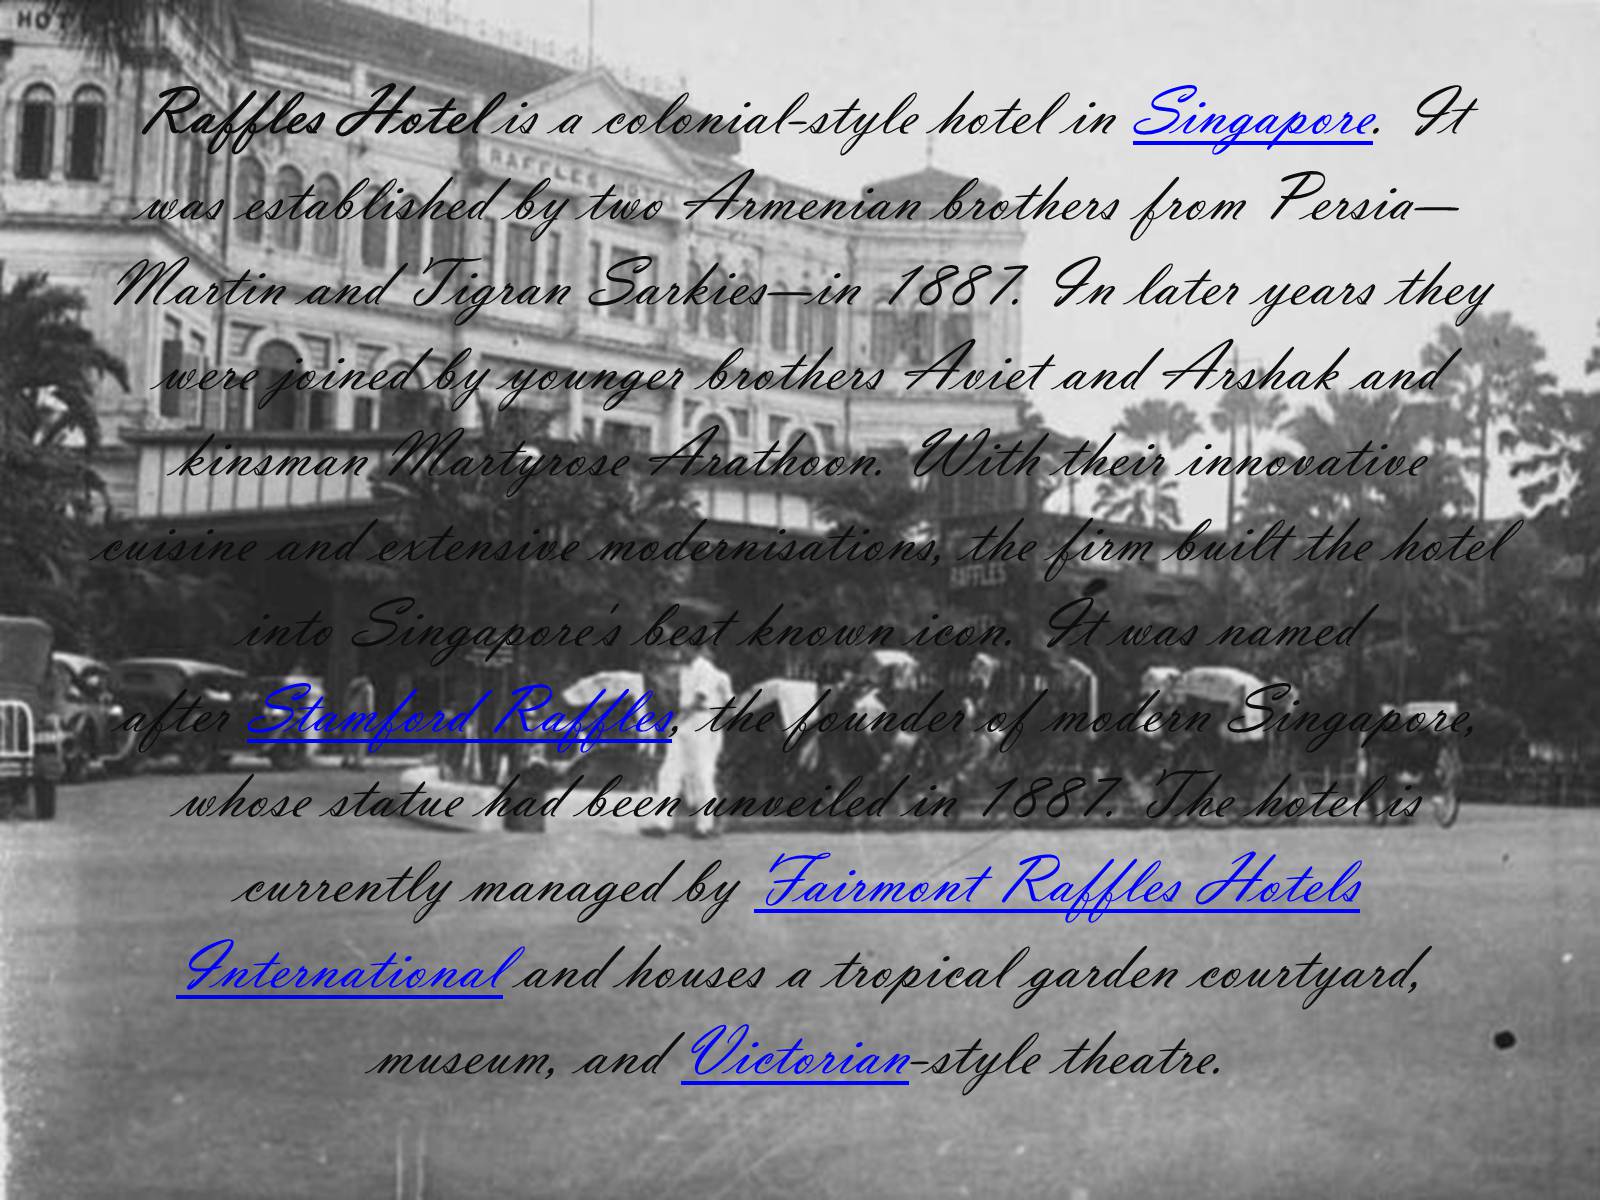 HOT
RAFFLES HOTEL
Raffles Hotel is a colonial-style hotel in Singapore. It
was established by two Armenian brothers from Persia—
Martin and Tigran Sarkies—in 1887. In later years they
were joined by younger brothers Aviet and Arshak and
kinsman Martyrose Arathoon. With their innovative
cuisine and extensive modernisations, the firm built the hotel
RAFFLES
into Singapore's best known icon. It was named
after Stamford Raffles, the founder of modern Singapore,
whose statue had been unveiled in 1887. The hotel is
currently managed by Fairmont Raffles Hotels
International and houses a tropical garden courtyard,
museum, and Victorian-style theatre.